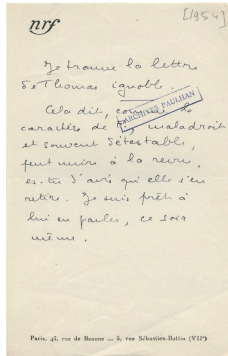 nrf
[1954]
Je trouve la lettre
de Thomas ignoble.
Cela dit, comme le
ARCHIVES PAULHAN
caractère de maladroit
et souvent détestable,
peut nuire à la revue,
es-tu d'avis qu'elle s'en
retire. Je suis prêt à
lui en parler, ce soir
même.
Paris, 43, rue de Beaune — 5, rue Sébastien-Bottin (VIIᵉ)